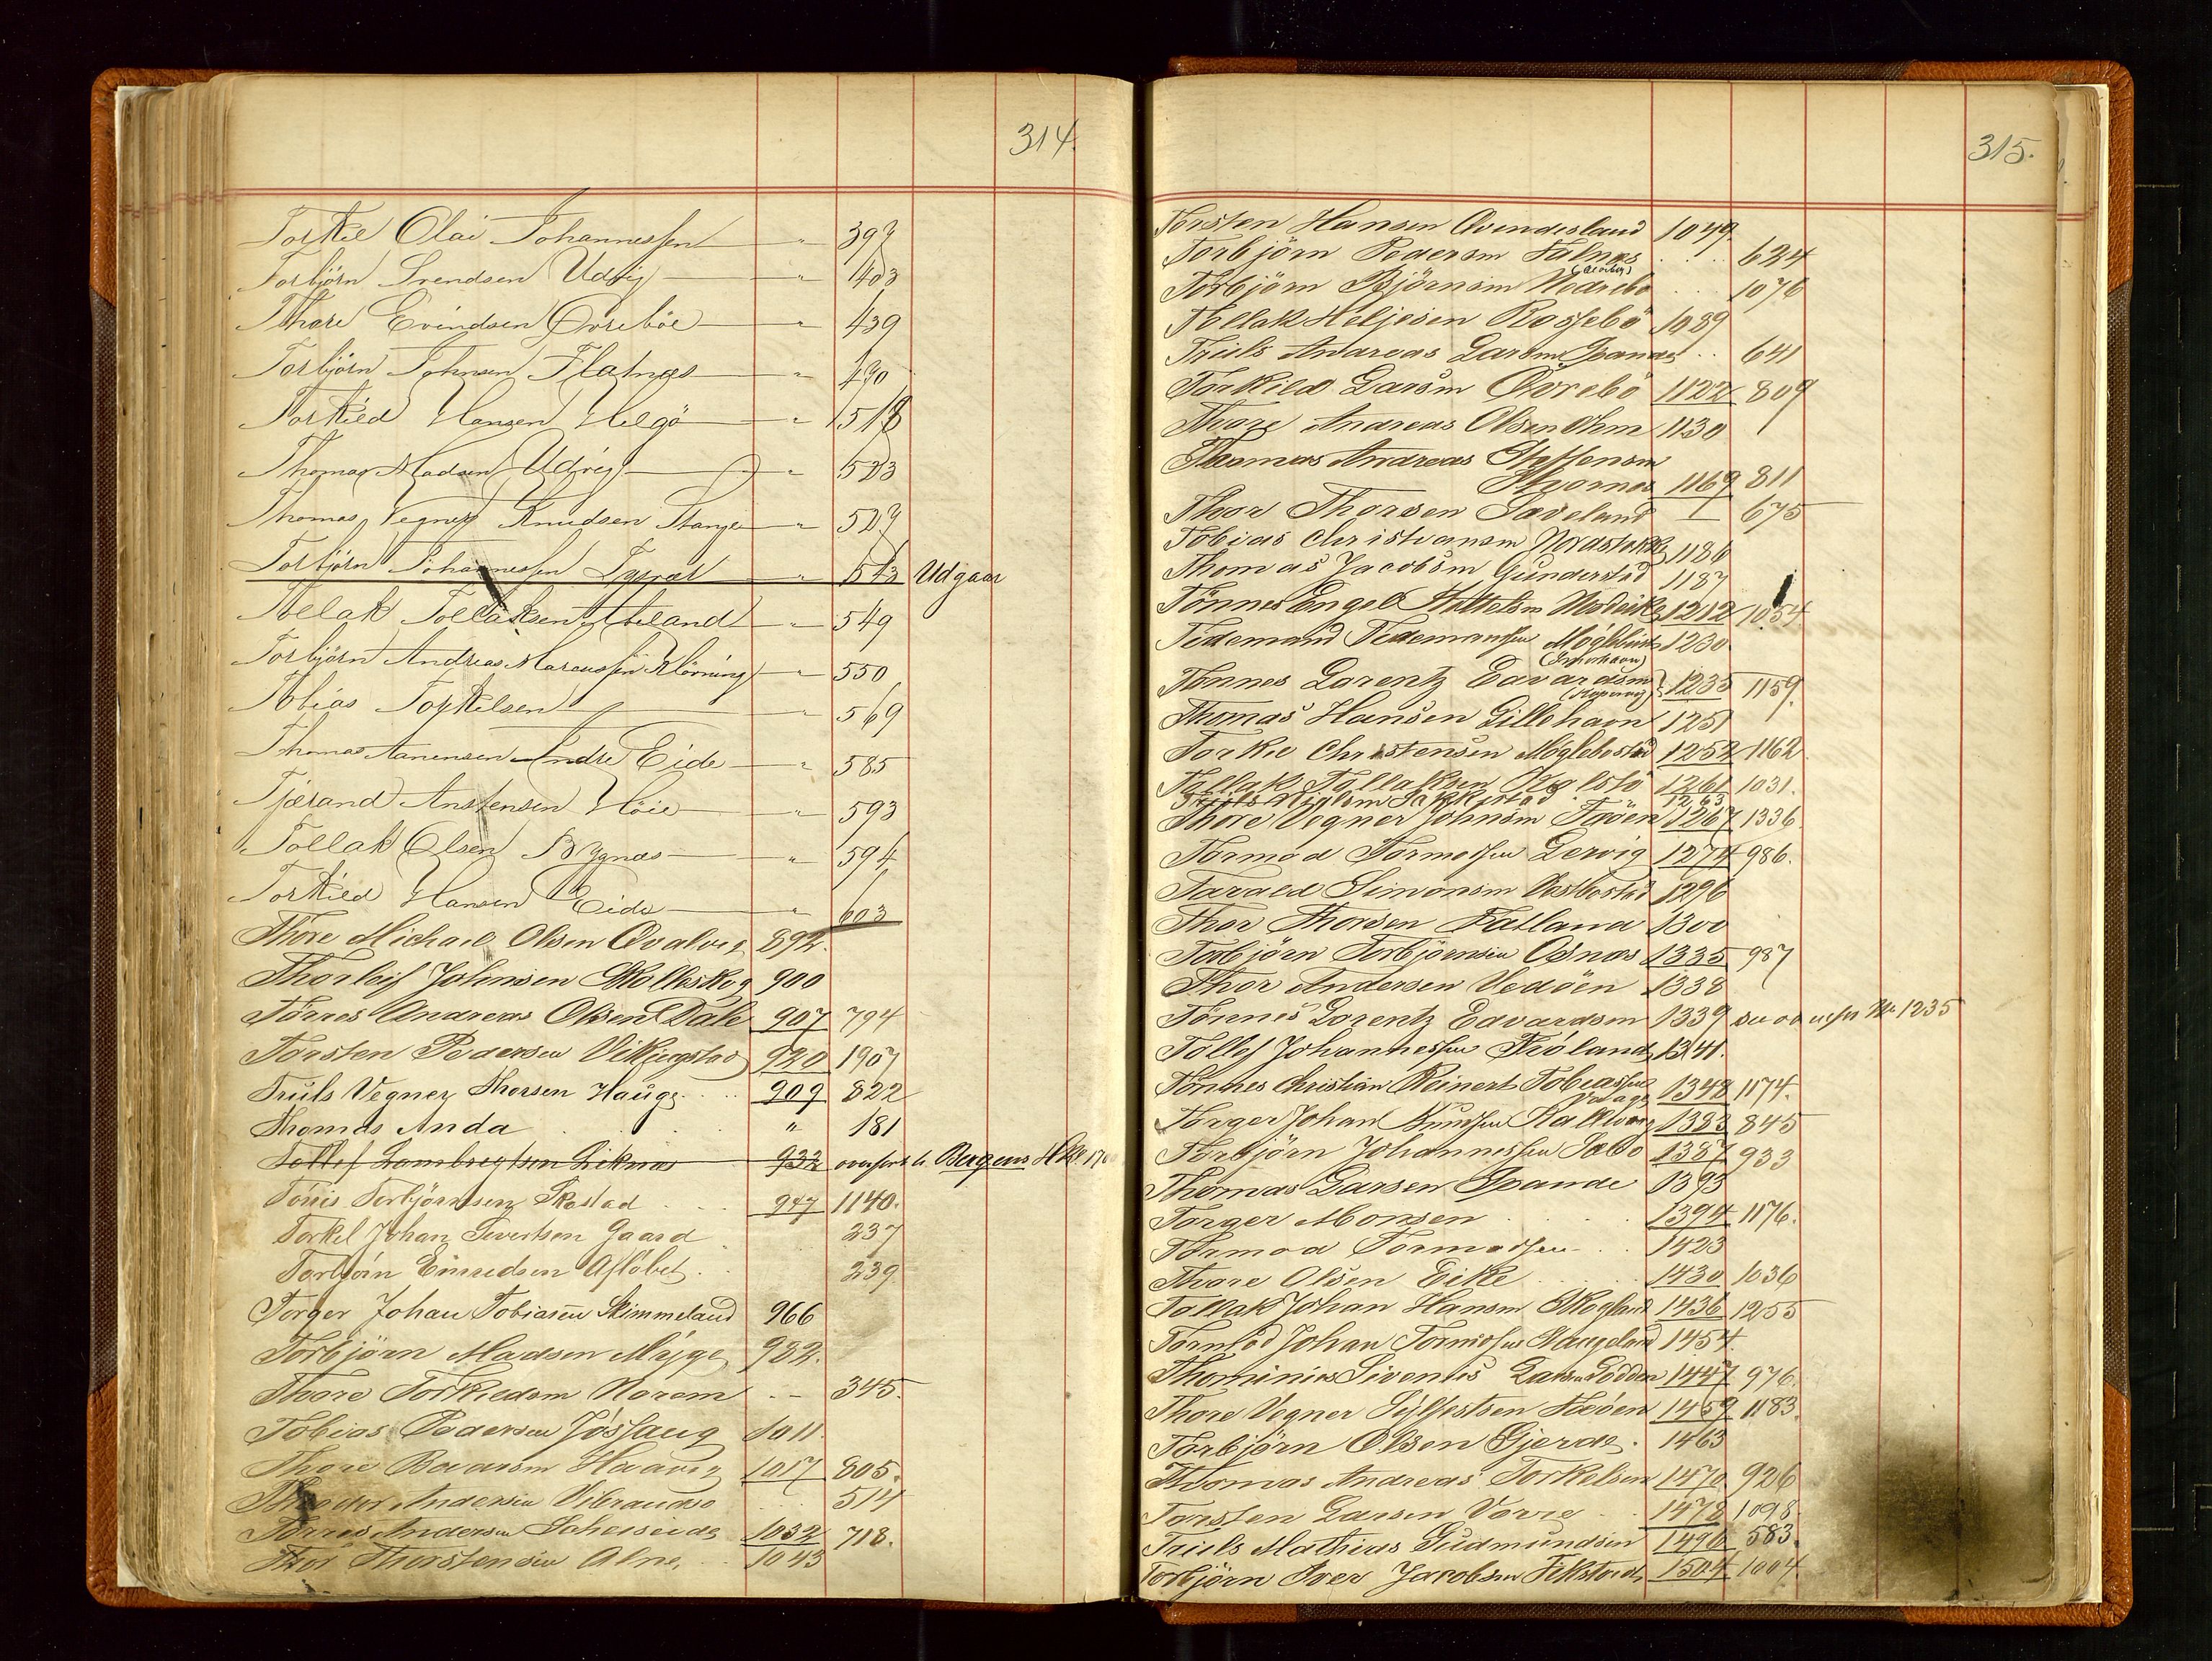 314.
Torkil Olai Johannessen " 397
Torbjörn Svendsen Udvig " 403
Thore Evindsen Övreböe " 439
Torbjörn Johnsen Flatnæs " 490
Torkild Hansen Helgö " 518
Thomas Madsen Udvig " 523
Thomas Vegner Knudsen Stange " 527
Torbjörn Johannessen " 543 Udgaar
Tollak Tollaksen " 549
Torbjörn Andreas Marcussen Klövning " 550
Tobias Torkelsen " 569
Thomas Aanensen Indre Eide " 585
Tjærand Anstensen Höie " 593
Tollak Olsen Bygnæs " 594
Torkild Hansen Eide " 603
Thore Michael Olsen Qvalvig 892.
Thorleif Johnsen 900
Törres Andreas Olsen Dale 907 794
Torsten Pedersen Vikingstad 920 1907
Truls Vegner Thorsen Hauge 909 822
Thomas Anda " 181
Tollef Lambregtsen Liknæs 932 overfört t. Bergens
Tönis Torbjörnsen Skastad 947 1140.
Torkel Johan Sivertsen Gaard 237
Torbjörn Einredsen Aflöbet. 239
Torger Johan Tobiasen Skimmeland 966
Torbjörn Madsen 982.
Thore Torkildsen 345.
Tobias Pedersen Jösfang 1011.
Thore Haavig 1017 805.
Theodor Andersen Vibrandsö 514
Törres Andersen 1032 718.
Thor Thorstensen Alne. 1043
315.
Torsten Hansen Qvindesland 1049.
Torbjörn Pedersen Falnæs 624
Torbjörn Björnsen Nedrebö 1076
Tollak Heljesen Rossebö 1089
Truls Andreas Larsen Spande 641
Torkild Larsen Övrebö 1122 809
Thore Andreas Olsen 1130
Thomas Andreas Steffensen
1169 811
Thor Thorsen Saveland — 675
Tobias Christiansen Nordstokke 1186
Thomas Jacobsen Gunderstad 1187
Tönnes Engel 1212 1054
Tidemand Tidemansen Möglebust 1230.
Tönnes Larentz Edvardsen 1235 1159.
Thomas Hansen Lillehavn 1251
Torkil Christensen Möglebustad 1252 1162
Tollak Tollaksen 1261 1031.
Truls 1263
Thore Vegner Johnsen Fæöen 1267 1336.
Tormod Tormodsen Lervig 1274 986.
Tarald Simonsen 1296
Thor Thorsen Fatland 1300
Torbjörn Torbjörnsen Osnæs 1335 987
Thor Andersen Vedöen 1338
Tönnes Lorentz Edvardsen 1339 see No 1235
Tollef Johannessen 1341.
Tönnes Christian Reinert Tobiassen 1348 1174.
Torger Johan 1383 845
Torbjörn Johannessen Sæbö 1387 933
Thomas Larsen Spande 1393
Torger Monsen 1394 1176.
Tormod Tormodsen 1423
Thore Olsen Eike 1430 1036
Tollak Johan Hansen 1436 1255
Tormod Johan Tormodsen Haugeland 1454.
Thominius Sivenus Larsen Lodden 1447 976.
Thore Vegner Fæöen 1459 1183.
Torbjörn Olsen Gjerde. 1463
Thomas Andreas Torkelsen 1470 926
Torsten Larsen Vorre 1478 1098.
Truls Mathias Gudmundsen 1496 583.
Torbjörn Iver Jacobsen 1504 1004.